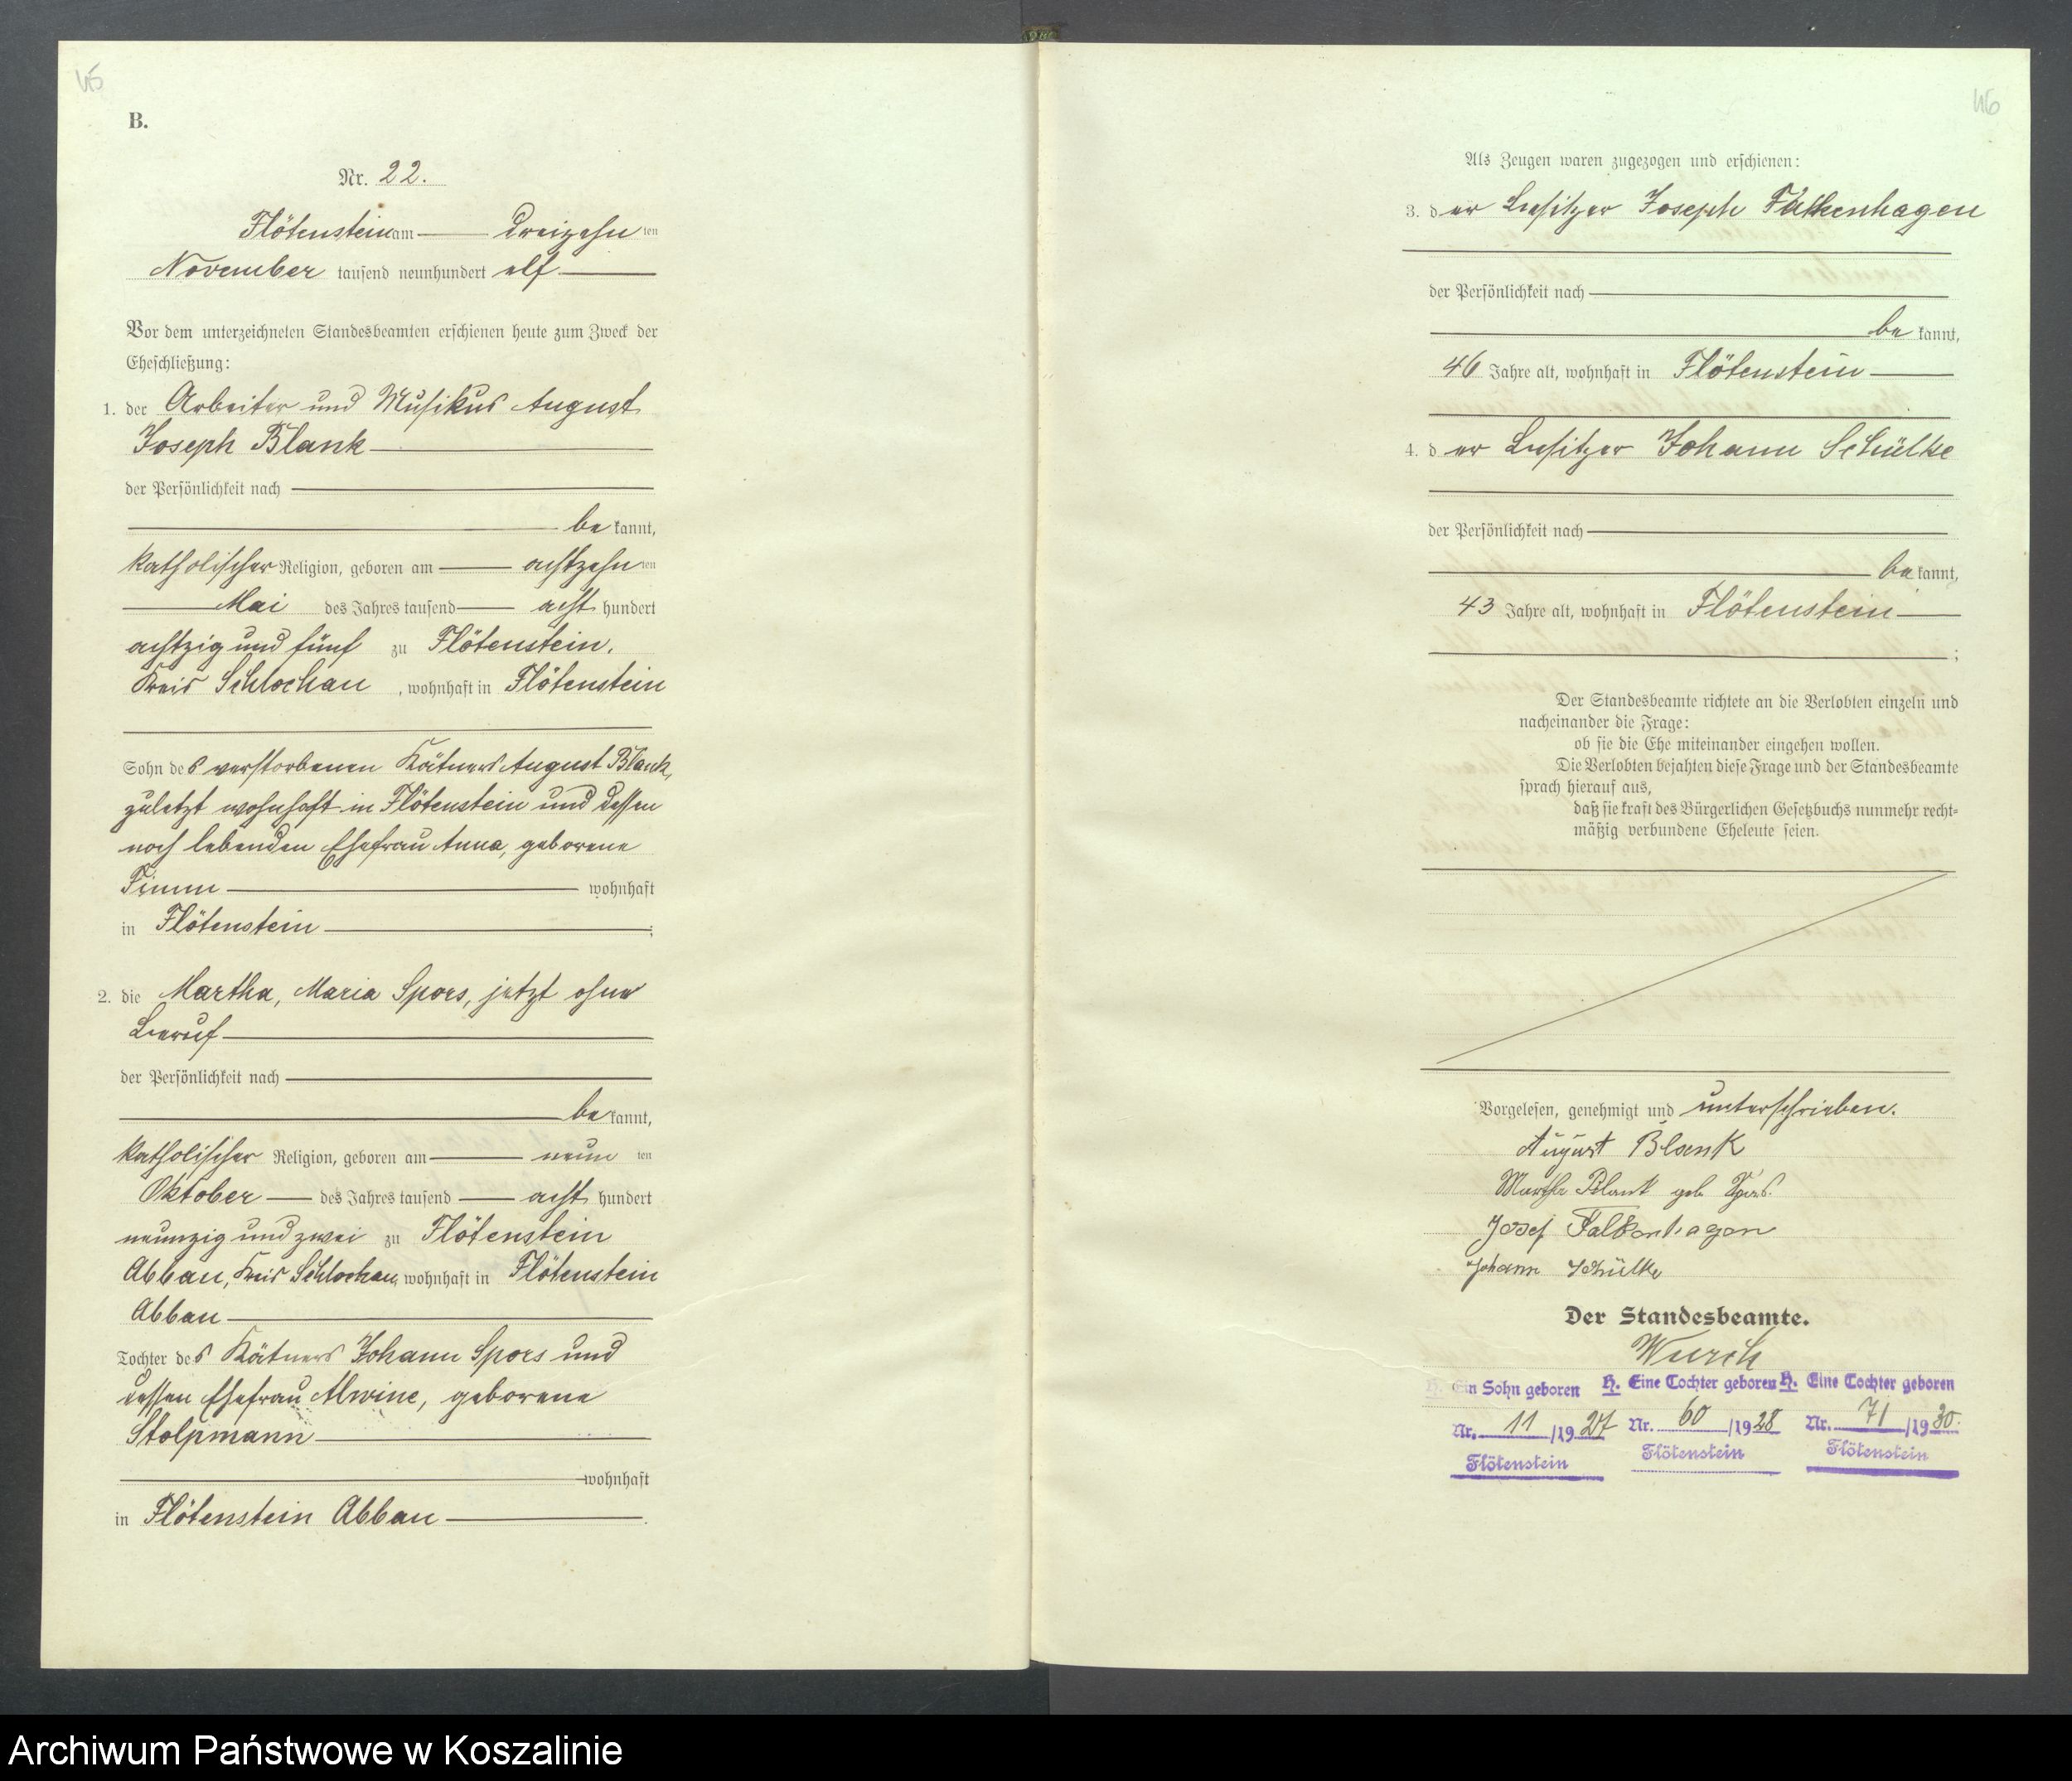 45
B.
Nr. 22.
Flötenstein am dreizehn ten
November tausend neunhundert elf
Vor dem unterzeichneten Standesbeamten erschienen heute zum Zweck der
Eheschließung:
1. der Arbeiter und Musikus August
Joseph Blank
der Persönlichkeit nach
be kannt,
katholischer Religion, geboren am achtzehn ten
Mai des Jahres tausend acht hundert
achtzig und fünf zu Flötenstein,
Kreis Schlochau, wohnhaft in Flötenstein
Sohn des verstorbenen Kätners August Blank,
zuletzt wohnhaft in Flötenstein und dessen
noch lebenden Ehefrau Anna, geborene
Timm wohnhaft
in Flötenstein ;
2. die Martha, Maria Spors, jetzt ohne
Beruf
der Persönlichkeit nach
be kannt,
katholischer Religion, geboren am neun ten
Oktober des Jahres tausend acht hundert
neunzig und zwei zu Flötenstein
Abbau, Kreis Schlochau, wohnhaft in Flötenstein
Abbau
Tochter des Kätners Johann Spors und
dessen Ehefrau Alwine, geborene
Stolpmann
wohnhaft
in Flötenstein Abbau .
46
Als Zeugen waren zugezogen und erschienen:
3. der Besitzer Joseph Falkenhagen
der Persönlichkeit nach
be kannt,
46 Jahre alt, wohnhaft in Flötenstein
4. der Besitzer Johann Schülke
der Persönlichkeit nach
be kannt,
43 Jahre alt, wohnhaft in Flötenstein
;
Der Standesbeamte richtete an die Verlobten einzeln und
nacheinander die Frage:
ob sie die Ehe miteinander eingehen wollen.
Die Verlobten bejahten diese Frage und der Standesbeamte
sprach hierauf aus,
daß sie kraft des Bürgerlichen Gesetzbuchs nunmehr recht-
mäßig verbundene Eheleute seien.
Vorgelesen, genehmigt und unterschrieben.
August Blank
Martha Blank geb. Spors.
Josef Falkenhagen
Johann Schülke
Der Standesbeamte.
Wurch
H. Ein Sohn geboren H. Eine Tochter geboren H. Eine Tochter geboren
Nr. 11 /1927 Nr. 60 /1928 Nr. 71 /1930.
Flötenstein Flötenstein Flötenstein
Archiwum Państwowe w Koszalinie